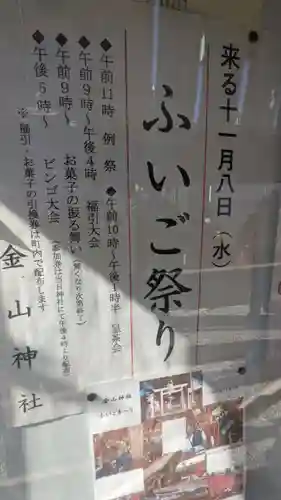 来る十一月八日（水）
ふいご祭り
◆午前11時　例祭　◆午前10時～午後1時半　呈茶会
◆午前9時～午後4時　福引大会
◆午前9時～　お菓子の振る舞い（無くなり次第終了）
◆午後5時～　ビンゴ大会（参加券は当日神社にて午後4時より配布）
※福引・お菓子の引換券は町内で配布します
金山神社
金山神社
ふいごまつり